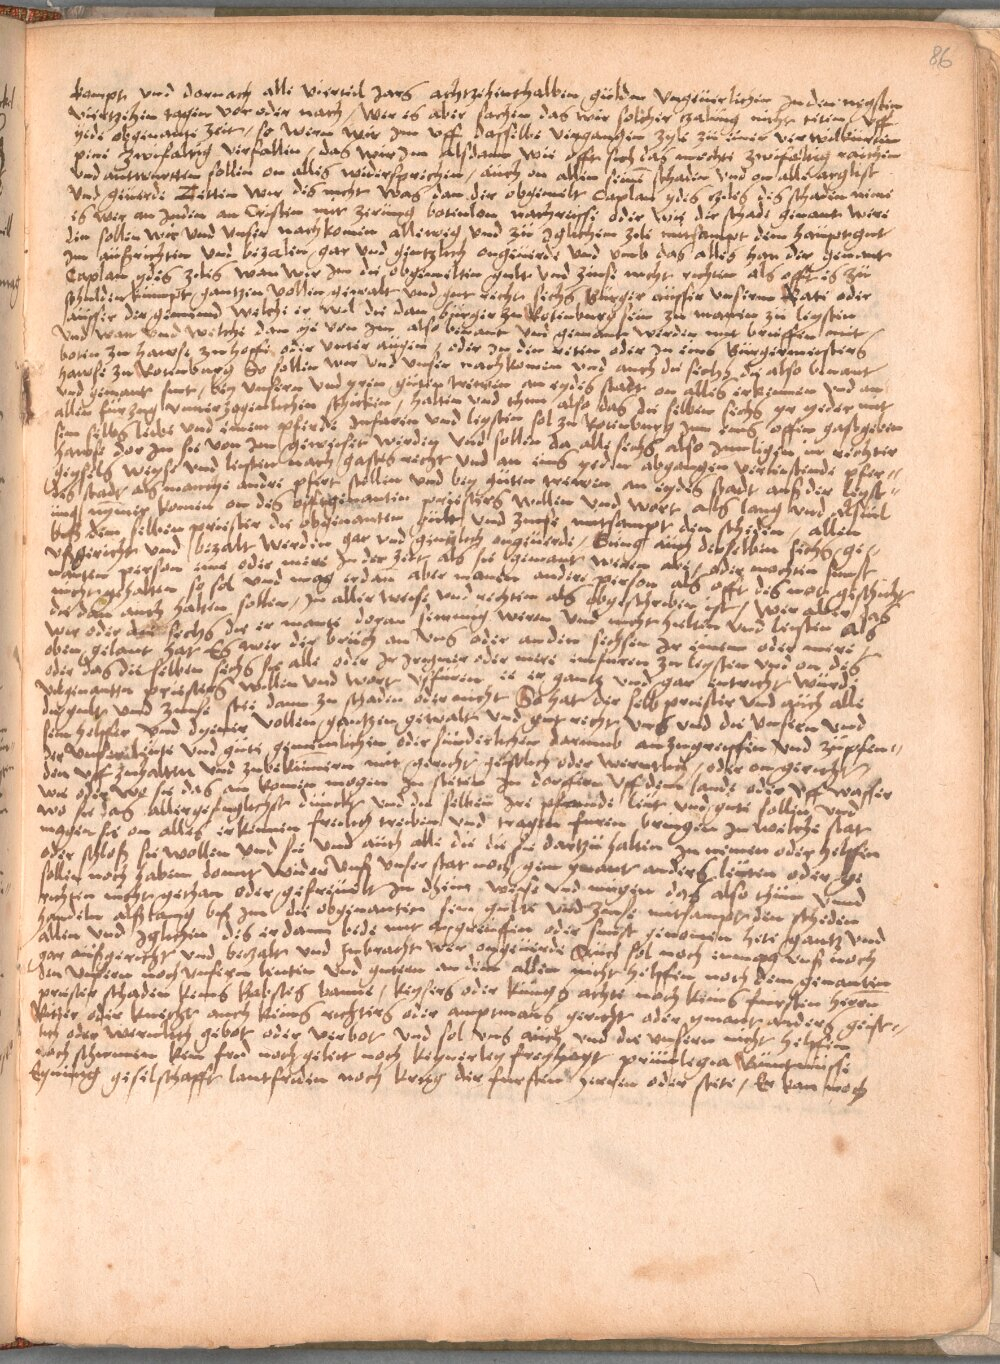 86
kompt und dornach alle vierteil Jars achtzehenthalben gulden ungeuerlichen In den negsten
viertzehen tagen vor oder nach / Wer es aber sachen das wir solcher tzalung nicht teten uff
yede obgenante zeit / so wern wir Im uff dasselbe vergangen zyle zu einer verwilkurten
pene zwifaltig verfallen / das wir Im alsdann wie offt sich das mechte zwifeltig raichen
und antwurtten sollen on alles widersprechen / auch on allen seinen schaden und on alle arglist
und geuerde Tetten wir des nicht Was dan der obgemelt Caplan ydes zieles des schaden neme
es wer an Juden an Cristen mit zerung botenlon nachreyse oder wie der schade genant were
den sollen wir und unser nachkomen allweg und zu yglichem zele mitsampt dem hauptgut
Im aufzrichten und bezalen gar und gentzlich ongeuerde und umb das alles han der genant
Caplan ydes zeles wan wir Im die obgemelten gult und zinse nicht richten als offt es zu
schulden kumpt / gantzen vollen gewalt und gut recht sechs Burger ausser unserm Rate oder
ausser der gemeind welche er wil die dan burger zu Rotenburg sein zu manen zu leysten
und wan und welche dan ye von Im also benant und gemant werden mit brieffen mit
boten zu hawse zu hoffe oder unter augen / oder In den reten oder In eins Burgermeisters
hawse zu Rotenburg So sollen wir und unser nachkomen und auch die sechs die also benant
und gemant sint / bey unsern und yren guten trewen an eydes stadt on alles erkennen und on
allen furzog unuerzogenlichen schicken / halten und thun also das die selben sechs yr yeder mit
sein selbs leibe und einem pferde Infaren und leysten sol zu Rotenburg Inn eins offen gastgeben
hawse dor In sie von Im geweiset werden und sollen da alle sechs also Inneligen In rechter
geysels weyse und leisten nach gastes recht und an eins yeden abgangen verleistende pfer=
des stadt als manige andre pfert stellen und bey guten trewen an eydes stadt aus der leyst=
ung nymer komen on des obgenanten priesters willen und wort als lang und alsuil
bosz dem selben priester die obgenanten gult und zinse mitsampt den scheden allen
ufgericht und bezalt werden gar und gentzlich ongeuerde / Ging auch derselben sechs ge=
nanten person eine oder mere In der zeit als sie gemant weren abe oder mochten sunst
nicht gehalten so sol und mag er dan aber manen andere person als offt des noch geschicht
die dan auch halten sollen / In aller weise und rechten als obgeschriben ist / Wer aber das
wir oder die sechs die er mante doran sewmig weren und nicht hielten und leisten als
oben gelaut hat Es wer der bruch an uns oder an den sechsen Ir einem oder mere /
oder das die selben sechs sie alle oder Ir yegner oder mere infuren zu leysten und on des
obgenanten priesters willen und wort usfuren ee er gantz und gar entricht wurde
der gult und zinse stee dann zu schaden oder nicht So hat der selb priester und auch alle
sein helffer und dyener vollen gantzen gewalt und gut recht uns und die unsern und
der unser leute und gute gemeinlichen oder sunderlichen darumb anzugreiffen und zupfen=
den uff zuhalten und zubekumern mit gericht geistlich oder werntlich / oder on gericht
wie oder wo sie das an komen mogen In steten In dorffern uff dem lande oder uff wasser
wo sie das allergefuglichst dunckt und die selben Ire pfande leut und gute sollen und
mogen sie on alles erkennen frelich treiben und tragen furen bringen In welche stat
oder schlosz sie wollen und sie und auch alle die die sie dartzu halten In nemen oder helffen
sollen noch haben domit wider unsz unser stat noch gein ymant anders leuten oder ge
richten nicht gethan oder gefreuelt In dhein weise und mugen das also thun und
handeln alszlang bisz Im die obgenanten sein gulte und zinse mitsampt den scheden
allen und yglichen des er dann bede mit angreiffen oder sunst genomen hete gantz und
gar ausgericht und bezalt und zubracht wer ongeuerde Auch sol noch enmag uns noch
den unsern noch unsern leuten und gutern an dem allen nicht helffen noch dem genanten
priester schaden keins Babstes banne / keysers oder kunigs achte noch keins fursten herrn
Ritter oder knecht auch keins richters oder amptmans gericht oder ymant anders geist=
lich oder werntlich gebot oder verbot und sol uns auch und die unsern nicht helffen
noch schirmen kein frid noch geleit noch keynerley freyheyt priuilegia Buntnusse
Eynung geselschafft lantfriden noch krieg der fursten herren oder stete / Er kan noch